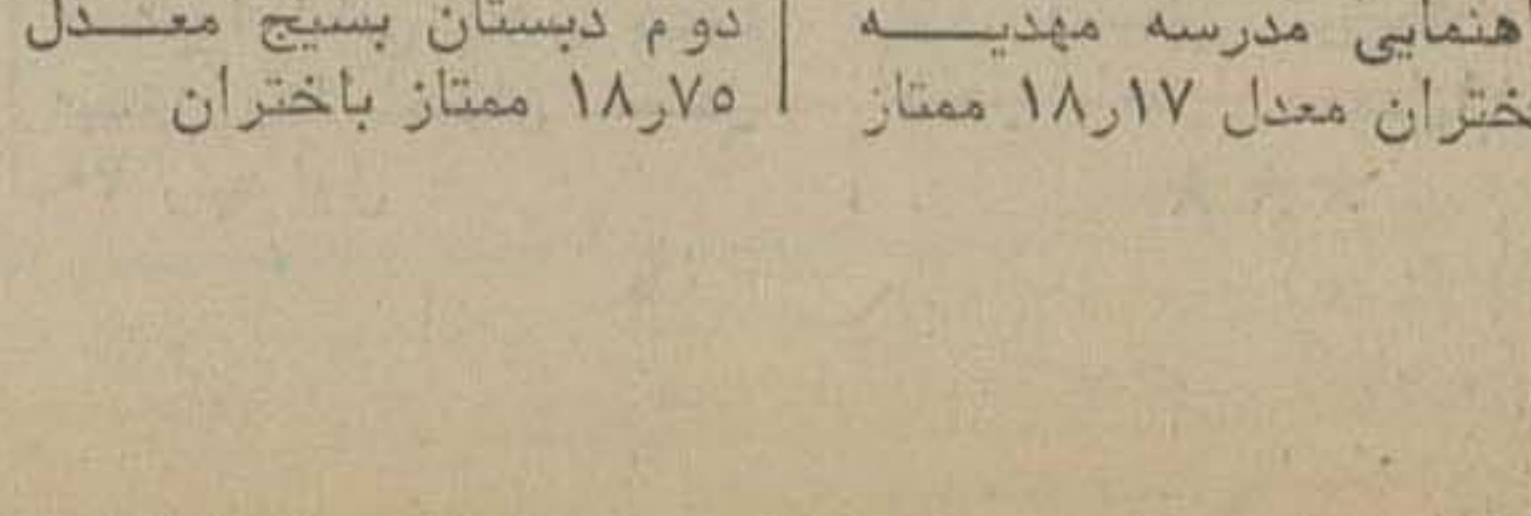 اهنمایی مدرسه مهدیه
ختران معدل ۱۸٫۱۷ ممتاز
دوم دبستان بسیج معدل
۱۸٫۷۵ ممتاز باختران